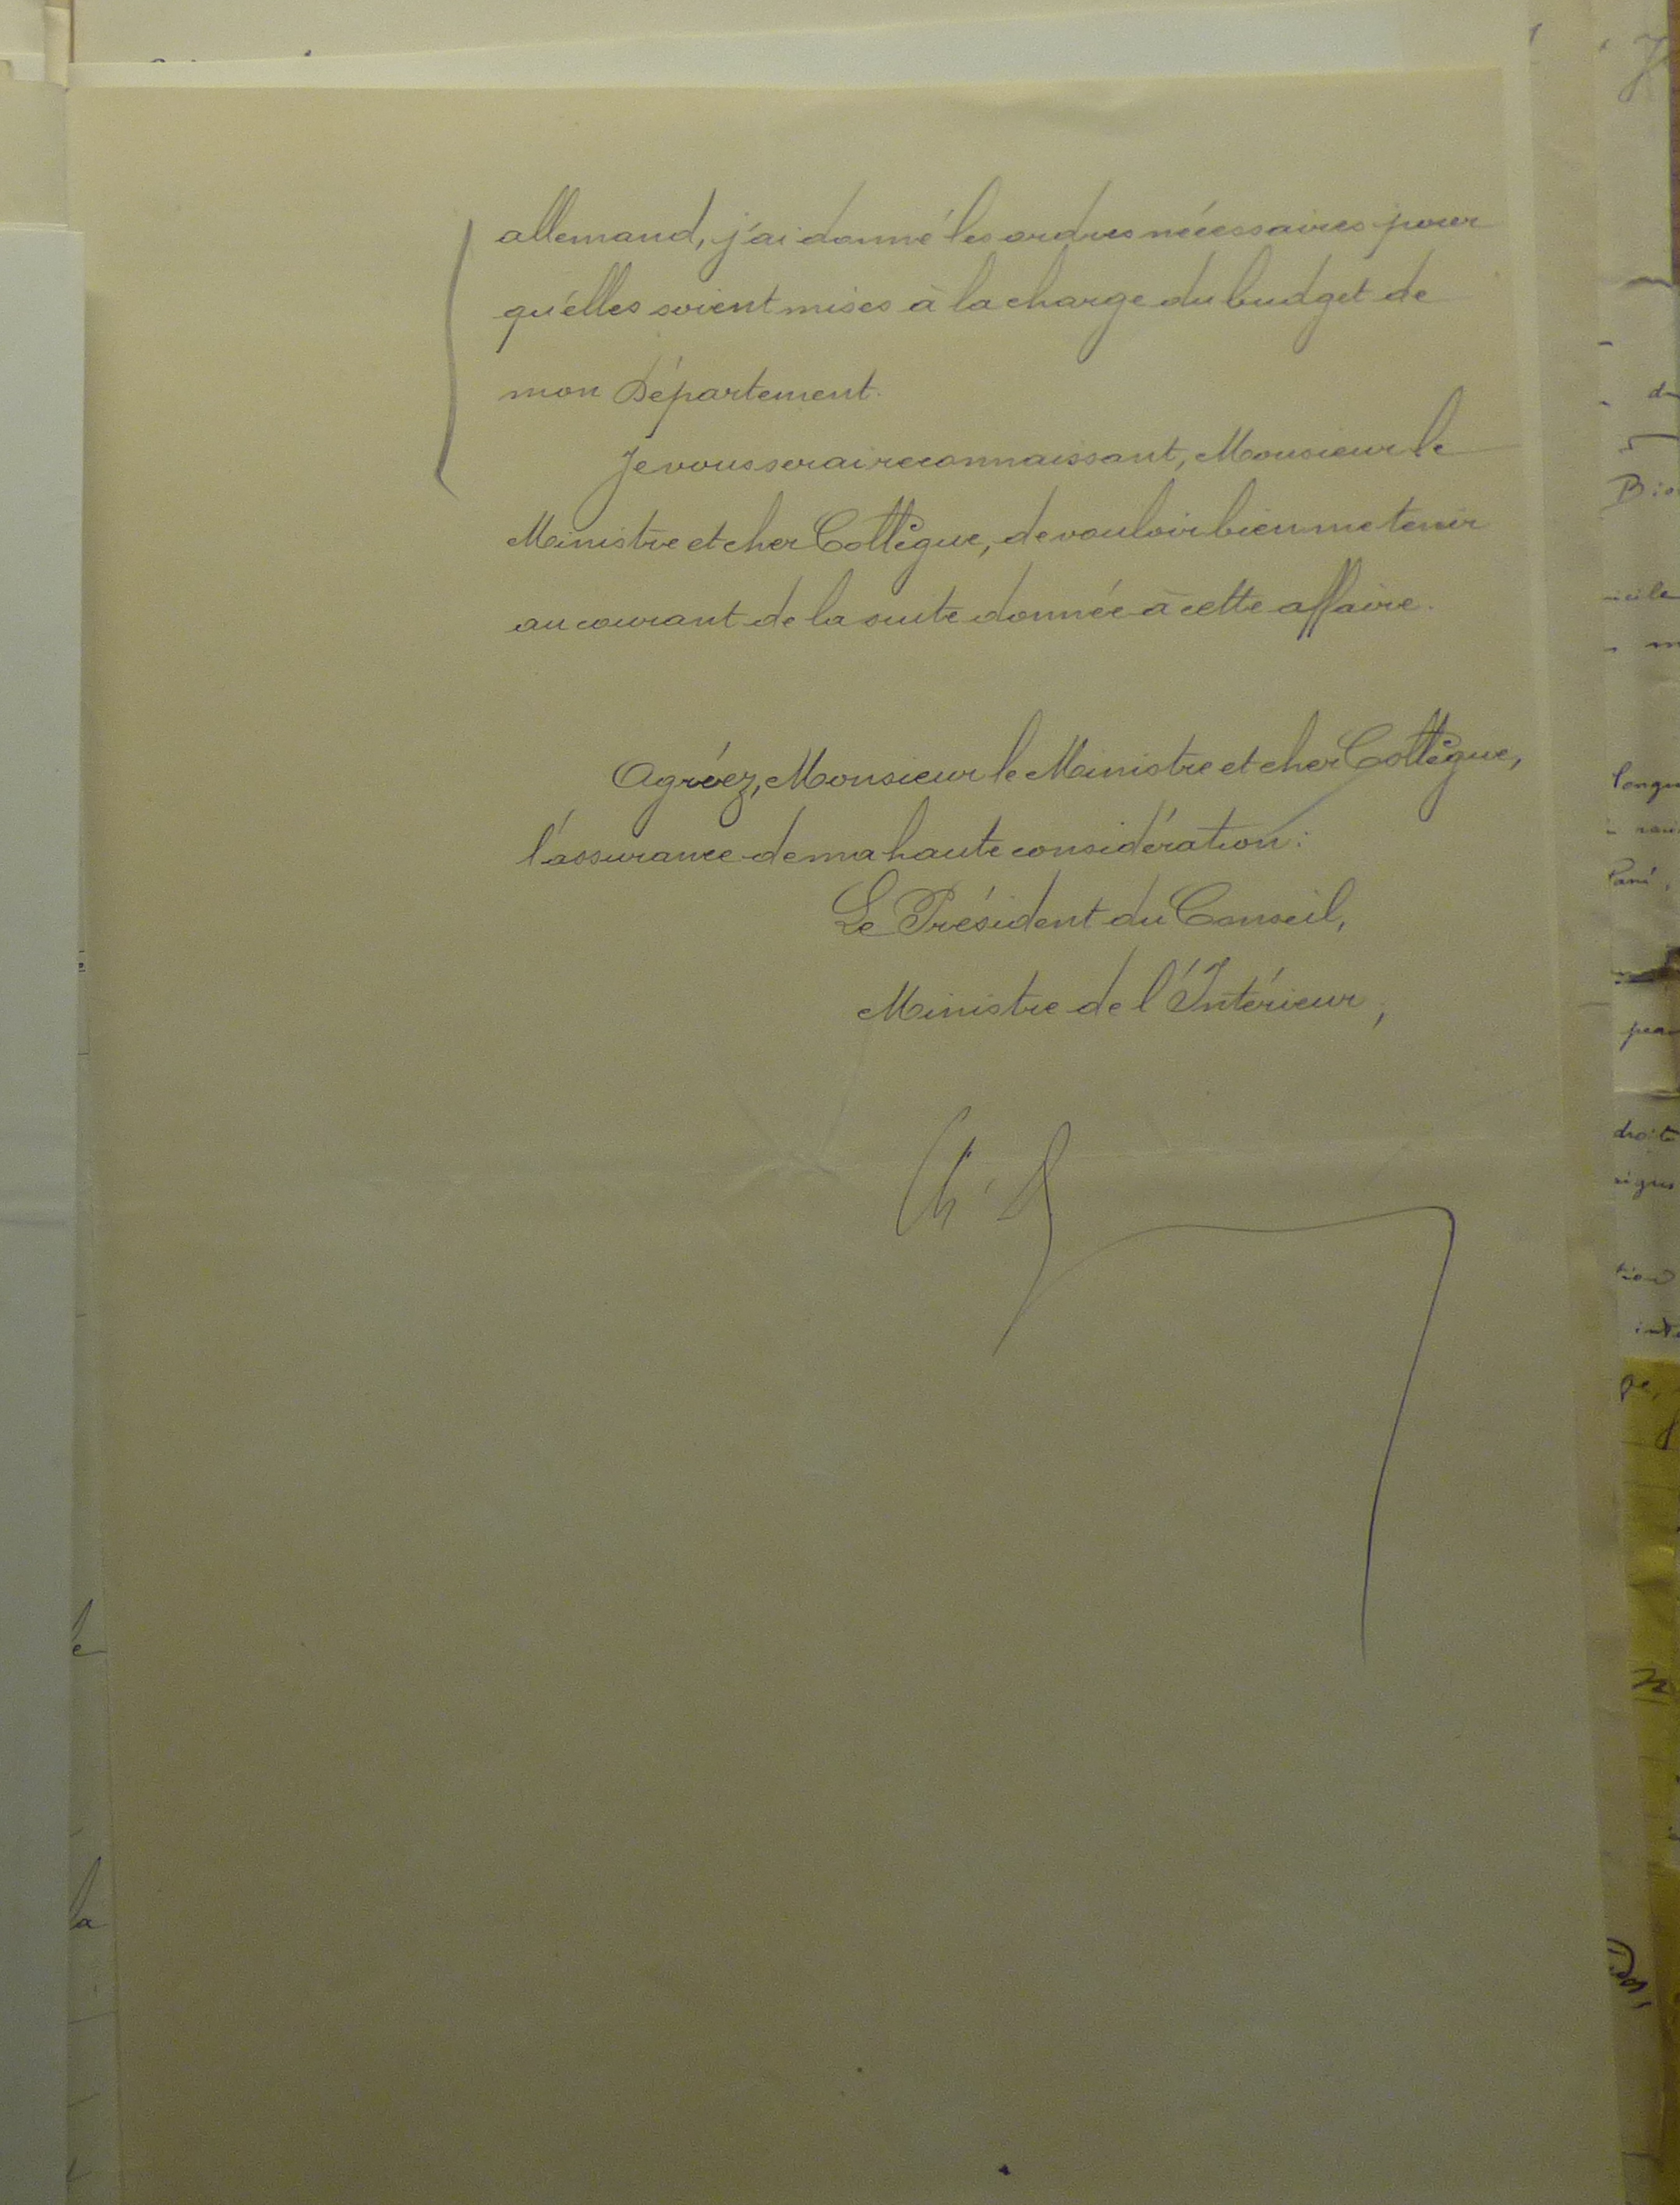 allemand, j'ai donné les ordres nécessaires pour
qu'elles soient mises à la charge du budget de
mon Département.
Je vous serai reconnaissant, Monsieur le
Ministre et cher Collègue, de vouloir bien me tenir
au courant de la suite donnée à cette affaire.
Agréez, Monsieur le Ministre et cher Collègue,
l'assurance de ma haute considération :
Le Président du Conseil,
Ministre de l'Intérieur,
Ch. D
le
la